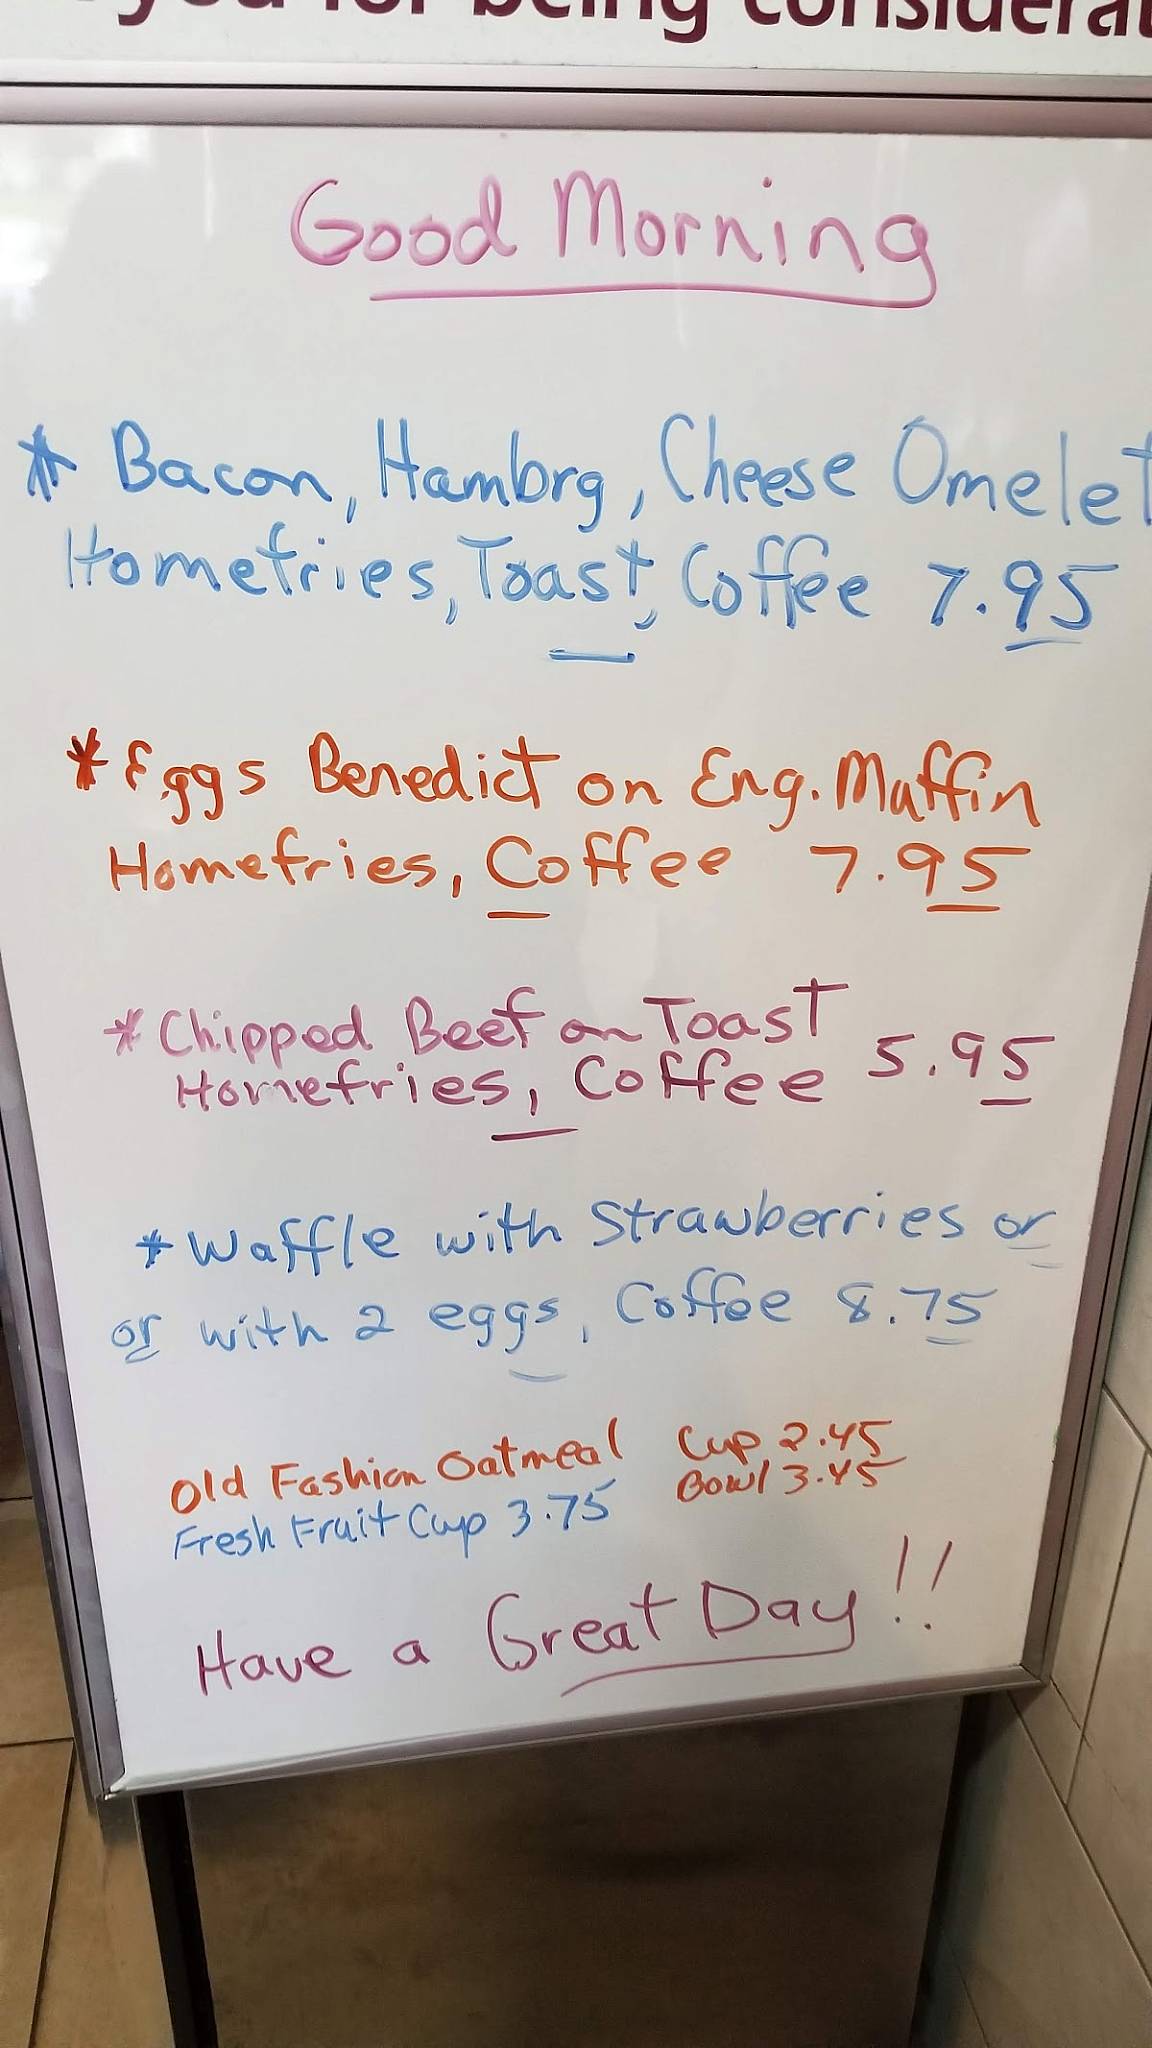 you for being considerat
Good Morning
* Bacon, Hambrg, Cheese Omelet
Homefries, Toast, Coffee 7.95
* Eggs Benedict on Eng. Muffin
Homefries, Coffee 7.95
* Chipped Beef on Toast
Homefries, Coffee 5.95
* Waffle with Strawberries or
or with 2 eggs, Coffee 8.75
Old Fashion Oatmeal Cup 2.45
Bowl 3.45
Fresh Fruit Cup 3.75
Have a Great Day!!